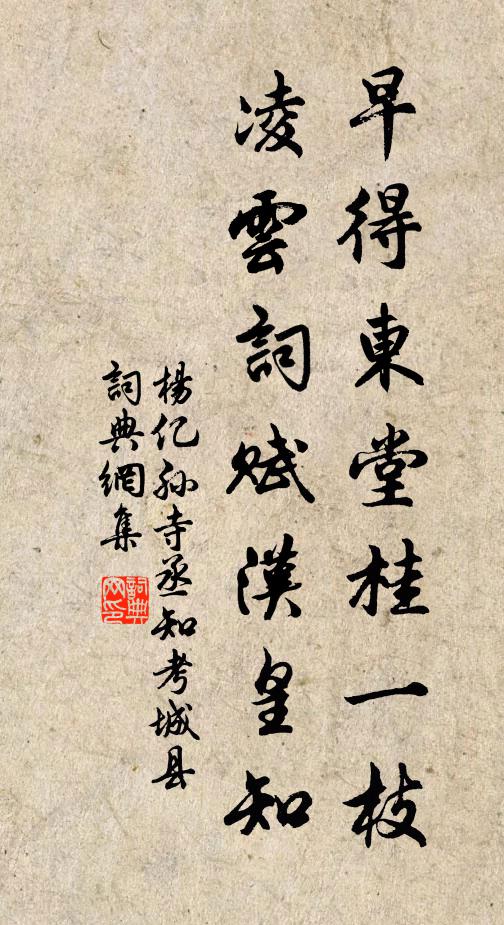 早得東堂桂一枝
凌雲詞賦漢皇知
楊亿孙寺丞知考城县
詞典網集
詞典
网印